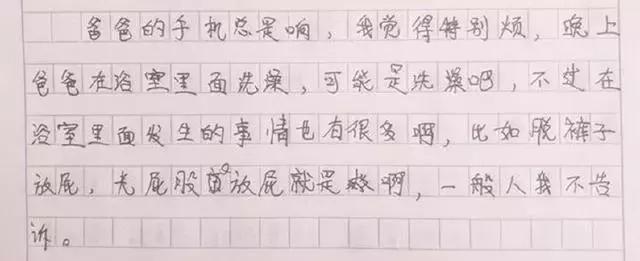 爸爸的手机总是响，我觉得特别烦，晚上
爸爸在浴室里面洗澡，可能是洗澡吧，不过在
浴室里面发生的事情也有很多啊，比如脱裤子
放屁，光屁股放屁就是爽啊，一般人我不告
诉。